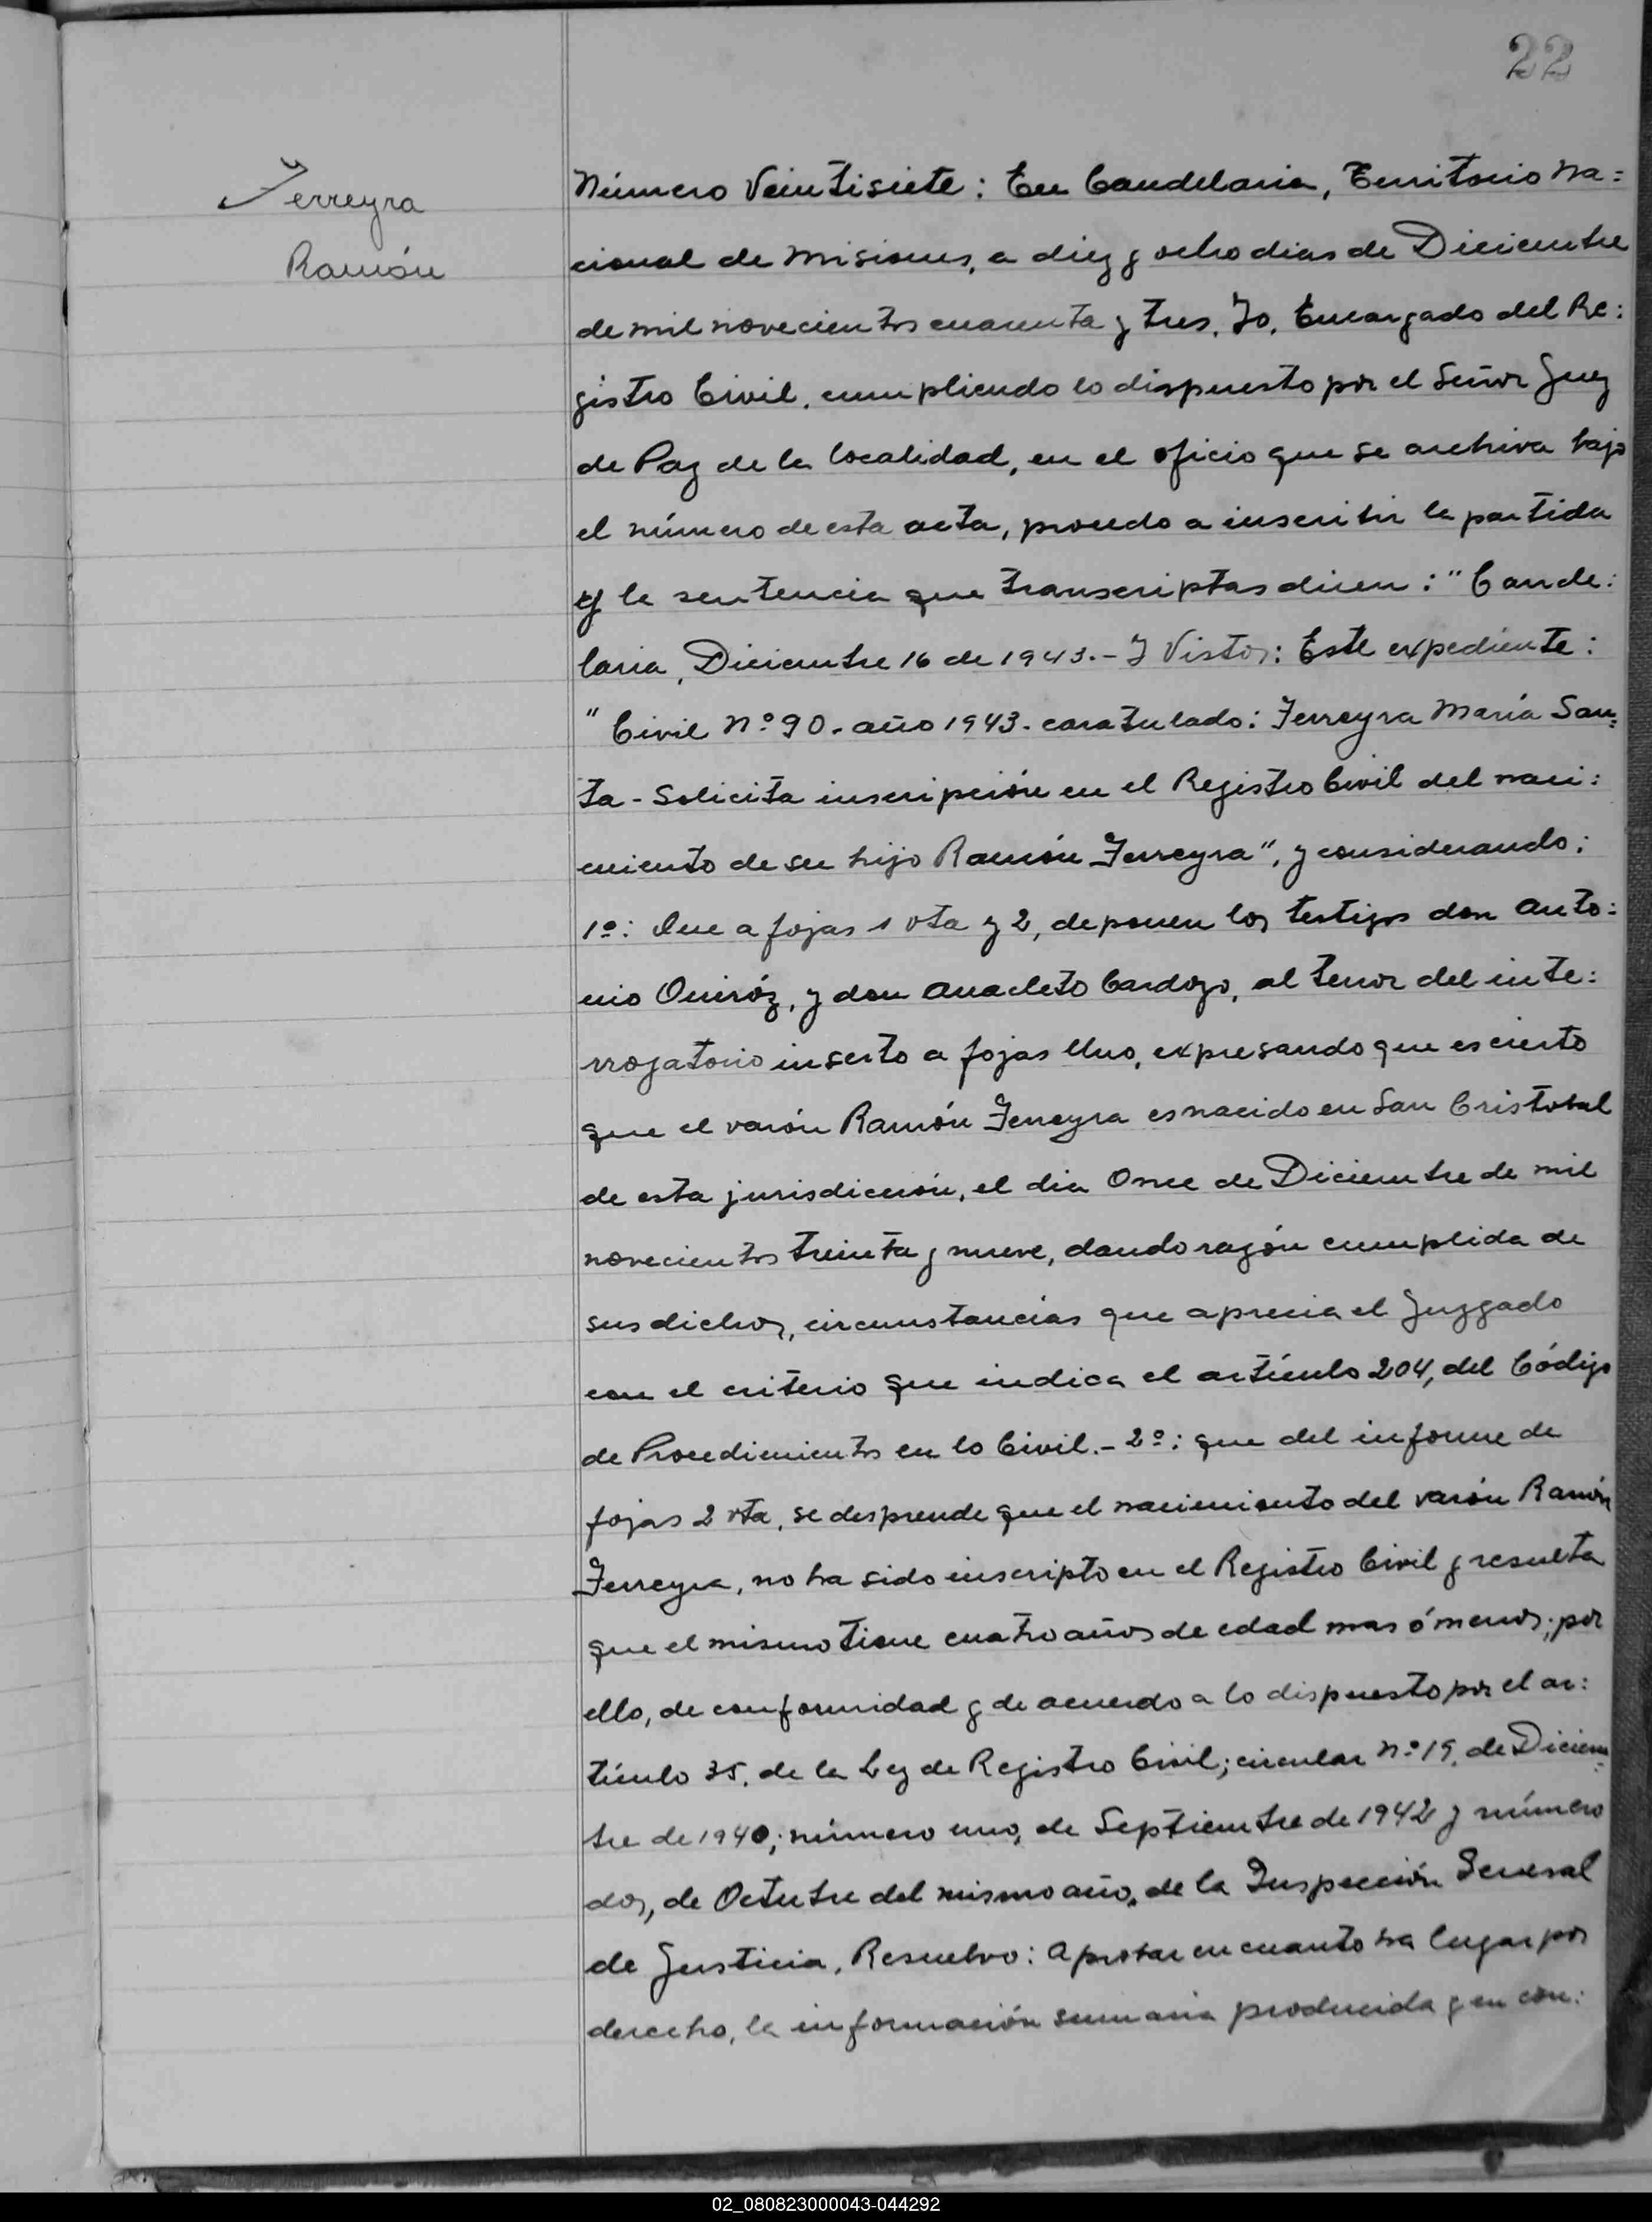 22
Ferreyra
Ramón
Número Veintisiete: En Candelaria, Territorio Na=
cional de Misiones, a diez y ocho dias de Diciembre
de mil novecientos cuarenta y tres. Yo, Encargado del Re=
gistro Civil, cumpliendo lo dispuesto por el Señor Juez
de Paz de la localidad, en el oficio que se archiva bajo
el número de esta acta, procedo a inscribir la partida
y la sentencia que transcriptas dicen: "Cande=
laria, Diciembre 16 de 1943.- Y Vistos: Este expediente:
"Civil Nº 90. año 1943. caratulado: Ferreyra María San=
ta - Solicita inscripción en el Registro Civil del naci=
miento de su hijo Ramón Ferreyra", y considerando:
1º: Que a fojas 1 vta y 2, deponen los testigos don Anto=
nio Quiróz, y don Anacleto Cardozo, al tenor del inte=
rrogatorio inserto a fojas Uno, expresando que es cierto
que el varón Ramón Ferreyra es nacido en San Cristobal
de esta jurisdicción, el dia Once de Diciembre de mil
novecientos treinta y nueve, dando razón cumplida de
sus dichos, circunstancias que aprecia el Juzgado
con el criterio que indica el artículo 204, del Código
de Procedimientos en lo Civil.- 2º: que del informe de
fojas 2 vta, se desprende que el nacimiento del varón Ramón
Ferreyra, no ha sido inscripto en el Registro Civil y resulta
que el mismo tiene cuatro años de edad mas ó menos; por
ello, de conformidad y de acuerdo a lo dispuesto por el ar=
tículo 35. de la Ley de Registro Civil; circular Nº 19, de Diciem=
bre de 1940; número uno, de Septiembre de 1942 y número
dos, de Octubre del mismo año, de la Inspección General
de Justicia, Resuelvo: Aprobar en cuanto ha lugar por
derecho, la información sumaria producida y en con=
02_080823000043-044292